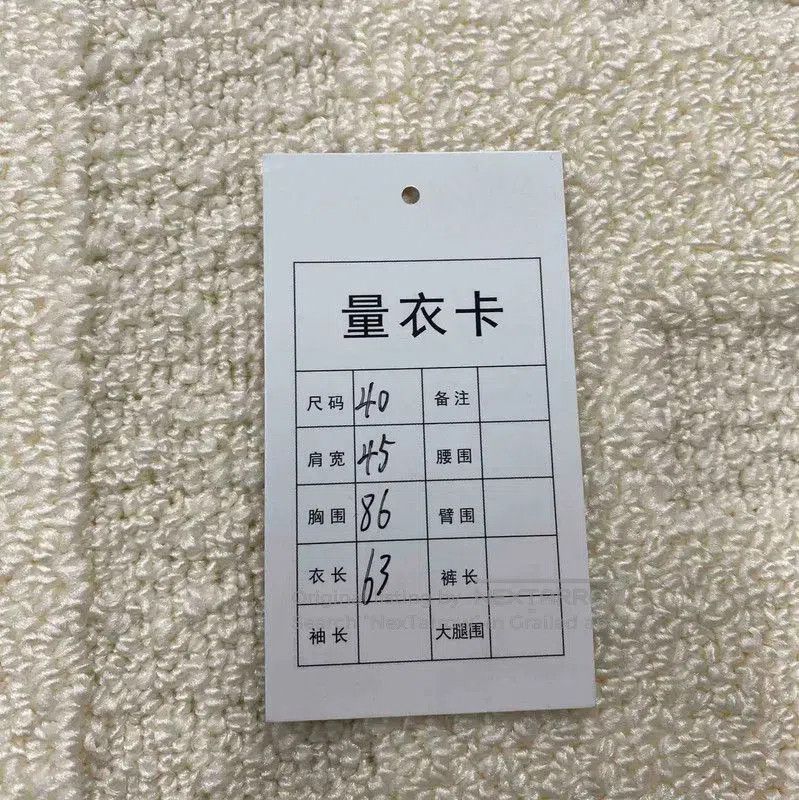 量衣卡
尺码 40 备注
肩宽 45 腰围
胸围 86 臂围
衣长 63 裤长
袖长 大腿围
Original listing by NEXTARR
Search "NexTa in Grailed a